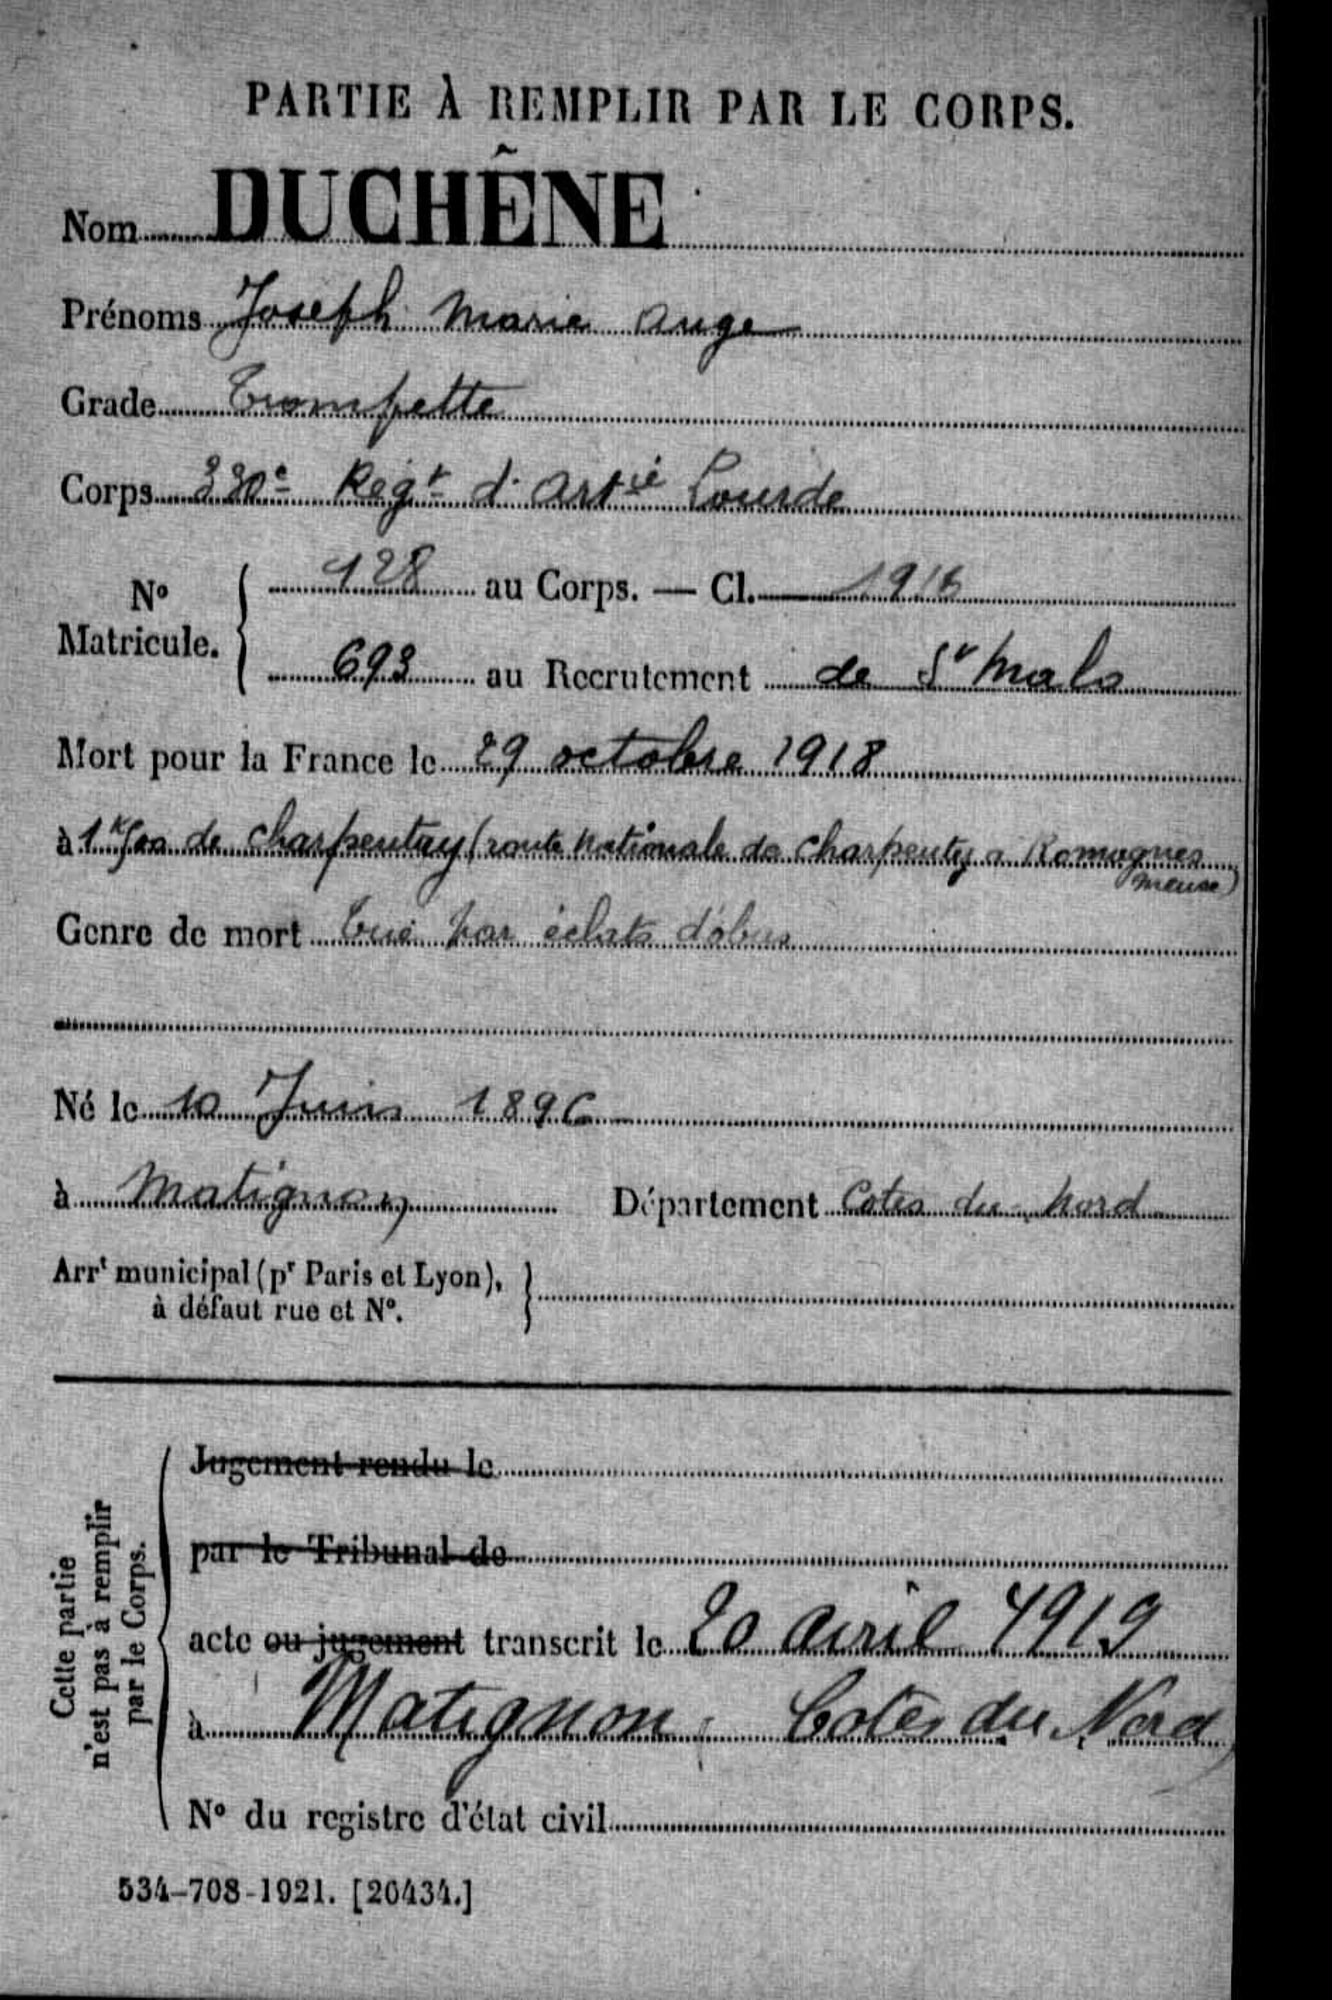 PARTIE À REMPLIR PAR LE CORPS.
Nom DUCHÊNE
Prénoms Joseph Marie Ange
Grade Trompette
Corps 330e Régt d'Artie Lourde
No Matricule. 128 au Corps. — Cl. 1916
693 au Recrutement de St Malo
Mort pour la France le 29 octobre 1918
à 1k500 de Charpentry (route Nationale de Charpentry a Romagnes
Meuse)
Genre de mort Tué par éclats d'obus
Né le 10 Juin 1896
à Matignon Département Cotes du Nord
Arrt municipal (pr Paris et Lyon),
à défaut rue et No.
Cette partie
n'est pas à remplir
par le Corps.
Jugement rendu le
par le Tribunal de
acte ou jugement transcrit le 20 avril 1919
à Matignon, Cotes du Nord
No du registre d'état civil
534-708-1921. [20434.]